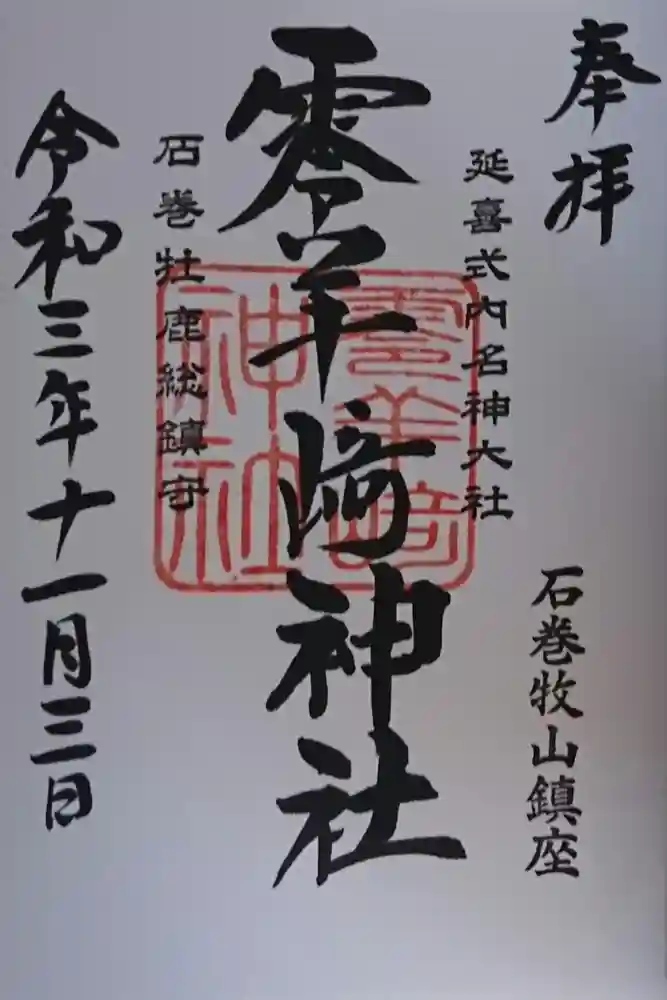 奉拝
石巻牧山鎮座
延喜式内名神大社
零羊崎神社
零羊崎
神社
石巻牡鹿総鎮守
令和三年十一月三日